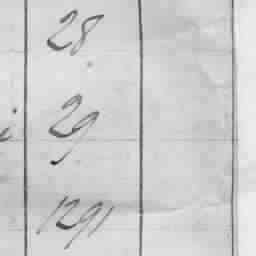 28
29
1291